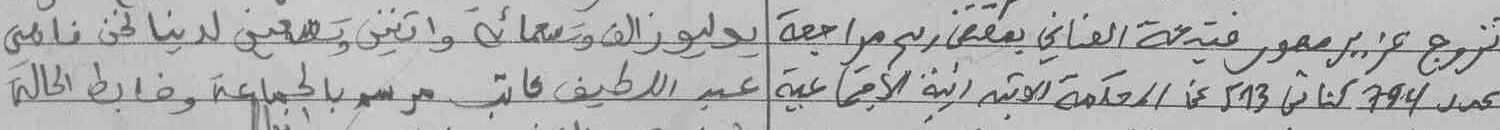 تزوج عزيز معمور فتيحة الفناني بمقتضى رسم مراجعة يوليوز الف وتسعمائة واثنين وتسعين لدينا نحن قاضي
عدد 794 كناش 513 عن المحكمة الابتدائية الاجتماعية عبد اللطيف كاتب مرسم بالجماعة وضابط الحالة